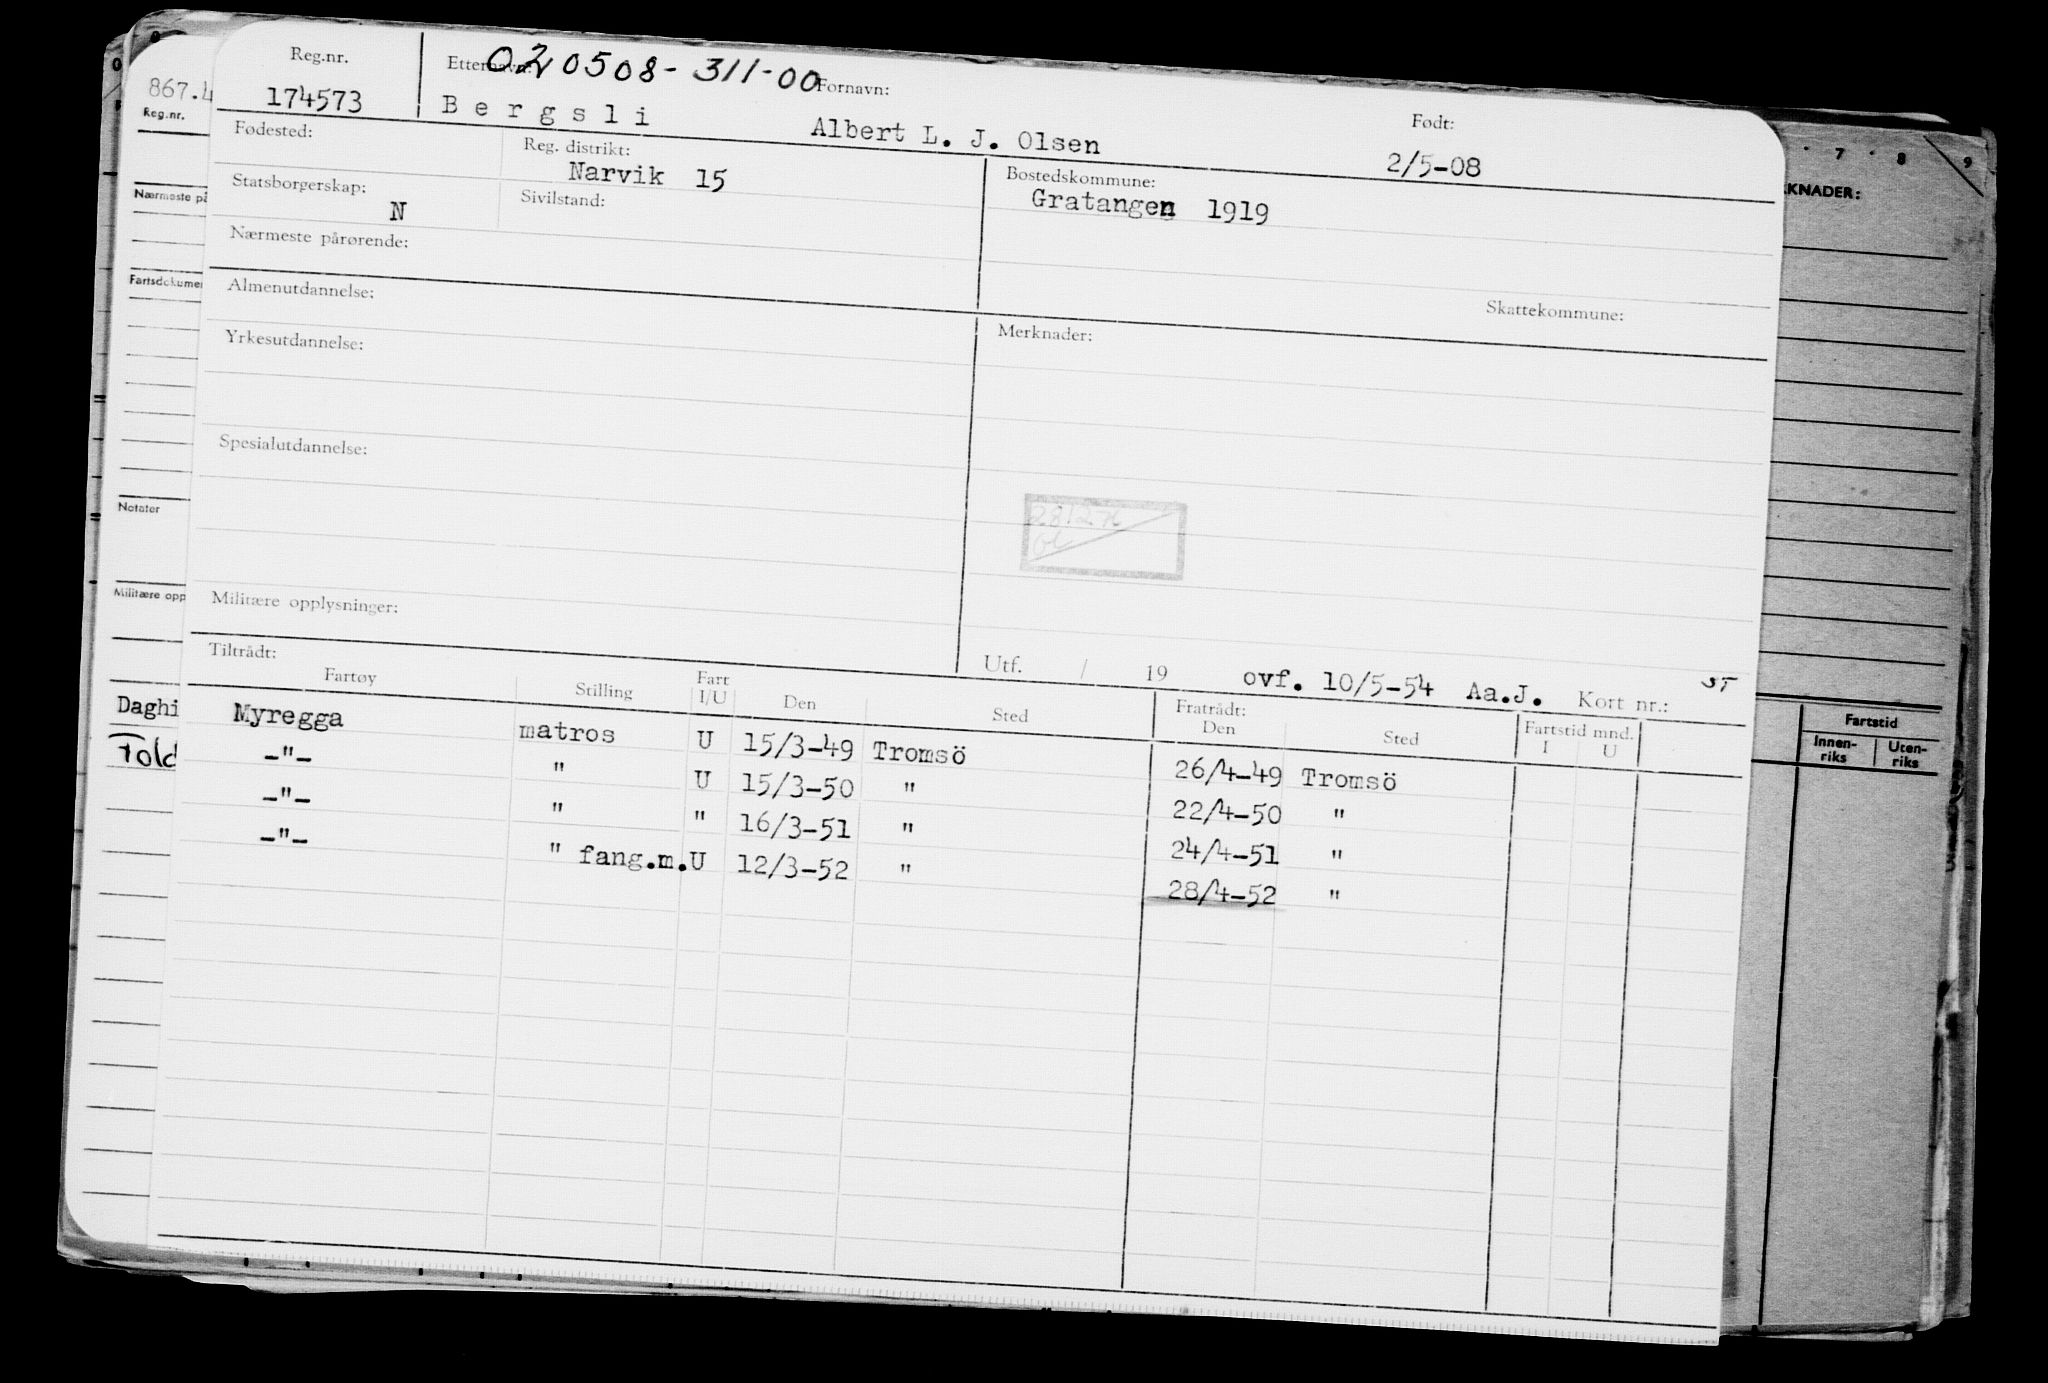 020508-311-00
Reg.nr. Etternavn: Fornavn: Født:
174573 Bergsli Albert L. J. Olsen 2/5-08
Fødested: Reg. distrikt: Bostedskommune:
Narvik 15 Gratangen 1919
Statsborgerskap: Sivilstand:
N
Nærmeste pårørende:
Skattekommune:
Almenutdannelse: Merknader:
Yrkesutdannelse:
Spesialutdannelse:
Militære opplysninger:
Utf. / 19 ovf. 10/5-54 Aa.J. Kort nr.:
Tiltrådt: Fratrådt:
Fartøy Stilling Fart I/U Den Sted Den Sted Fartstid mnd. I U
Myregga matros U 15/3-49 Tromsö 26/4-49 Tromsö
-"- " U 15/3-50 " 22/4-50 "
-"- " " 16/3-51 " 24/4-51 "
-"- " fang.m. U 12/3-52 " 28/4-52 "
867.4
Reg.nr.
Nærmeste på
Fartsdokumen
Notater
Militære opp
Daghi
Told
7 · 8 9
KNADER:
Fartstid
Innen-riks Uten-riks